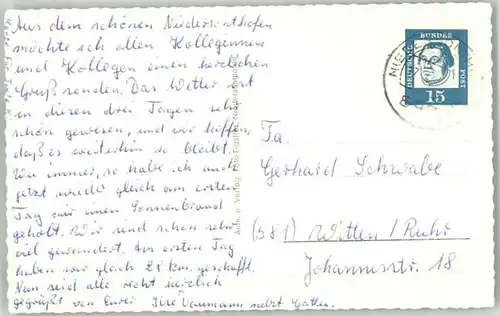 Aus dem schönen Niedersonthofen
möchte ich allen Kolleginnen
und Kollegen einen herzlichen
Gruß senden. Das Wetter ist
in diesen drei Tagen sehr
schön gewesen, und wir hoffen,
daß es weiterhin so bleibt.
Wie immer, so habe ich auch
jetzt wieder gleich am ersten
Tag mir einen Sonnenbrand
geholt. Wir sind schon sehr
viel gewandert. Am ersten Tag
haben wir gleich 28 km. geschafft.
Nun seid alle recht herzlich
gegrüßt von Eurer Ilse Daumann nebst Gatten.
DEUTSCHE
BUNDES
POST
15
Fa.
Gerhard Schwabe
(581) Witten / Ruhr
Johannisstr. 18